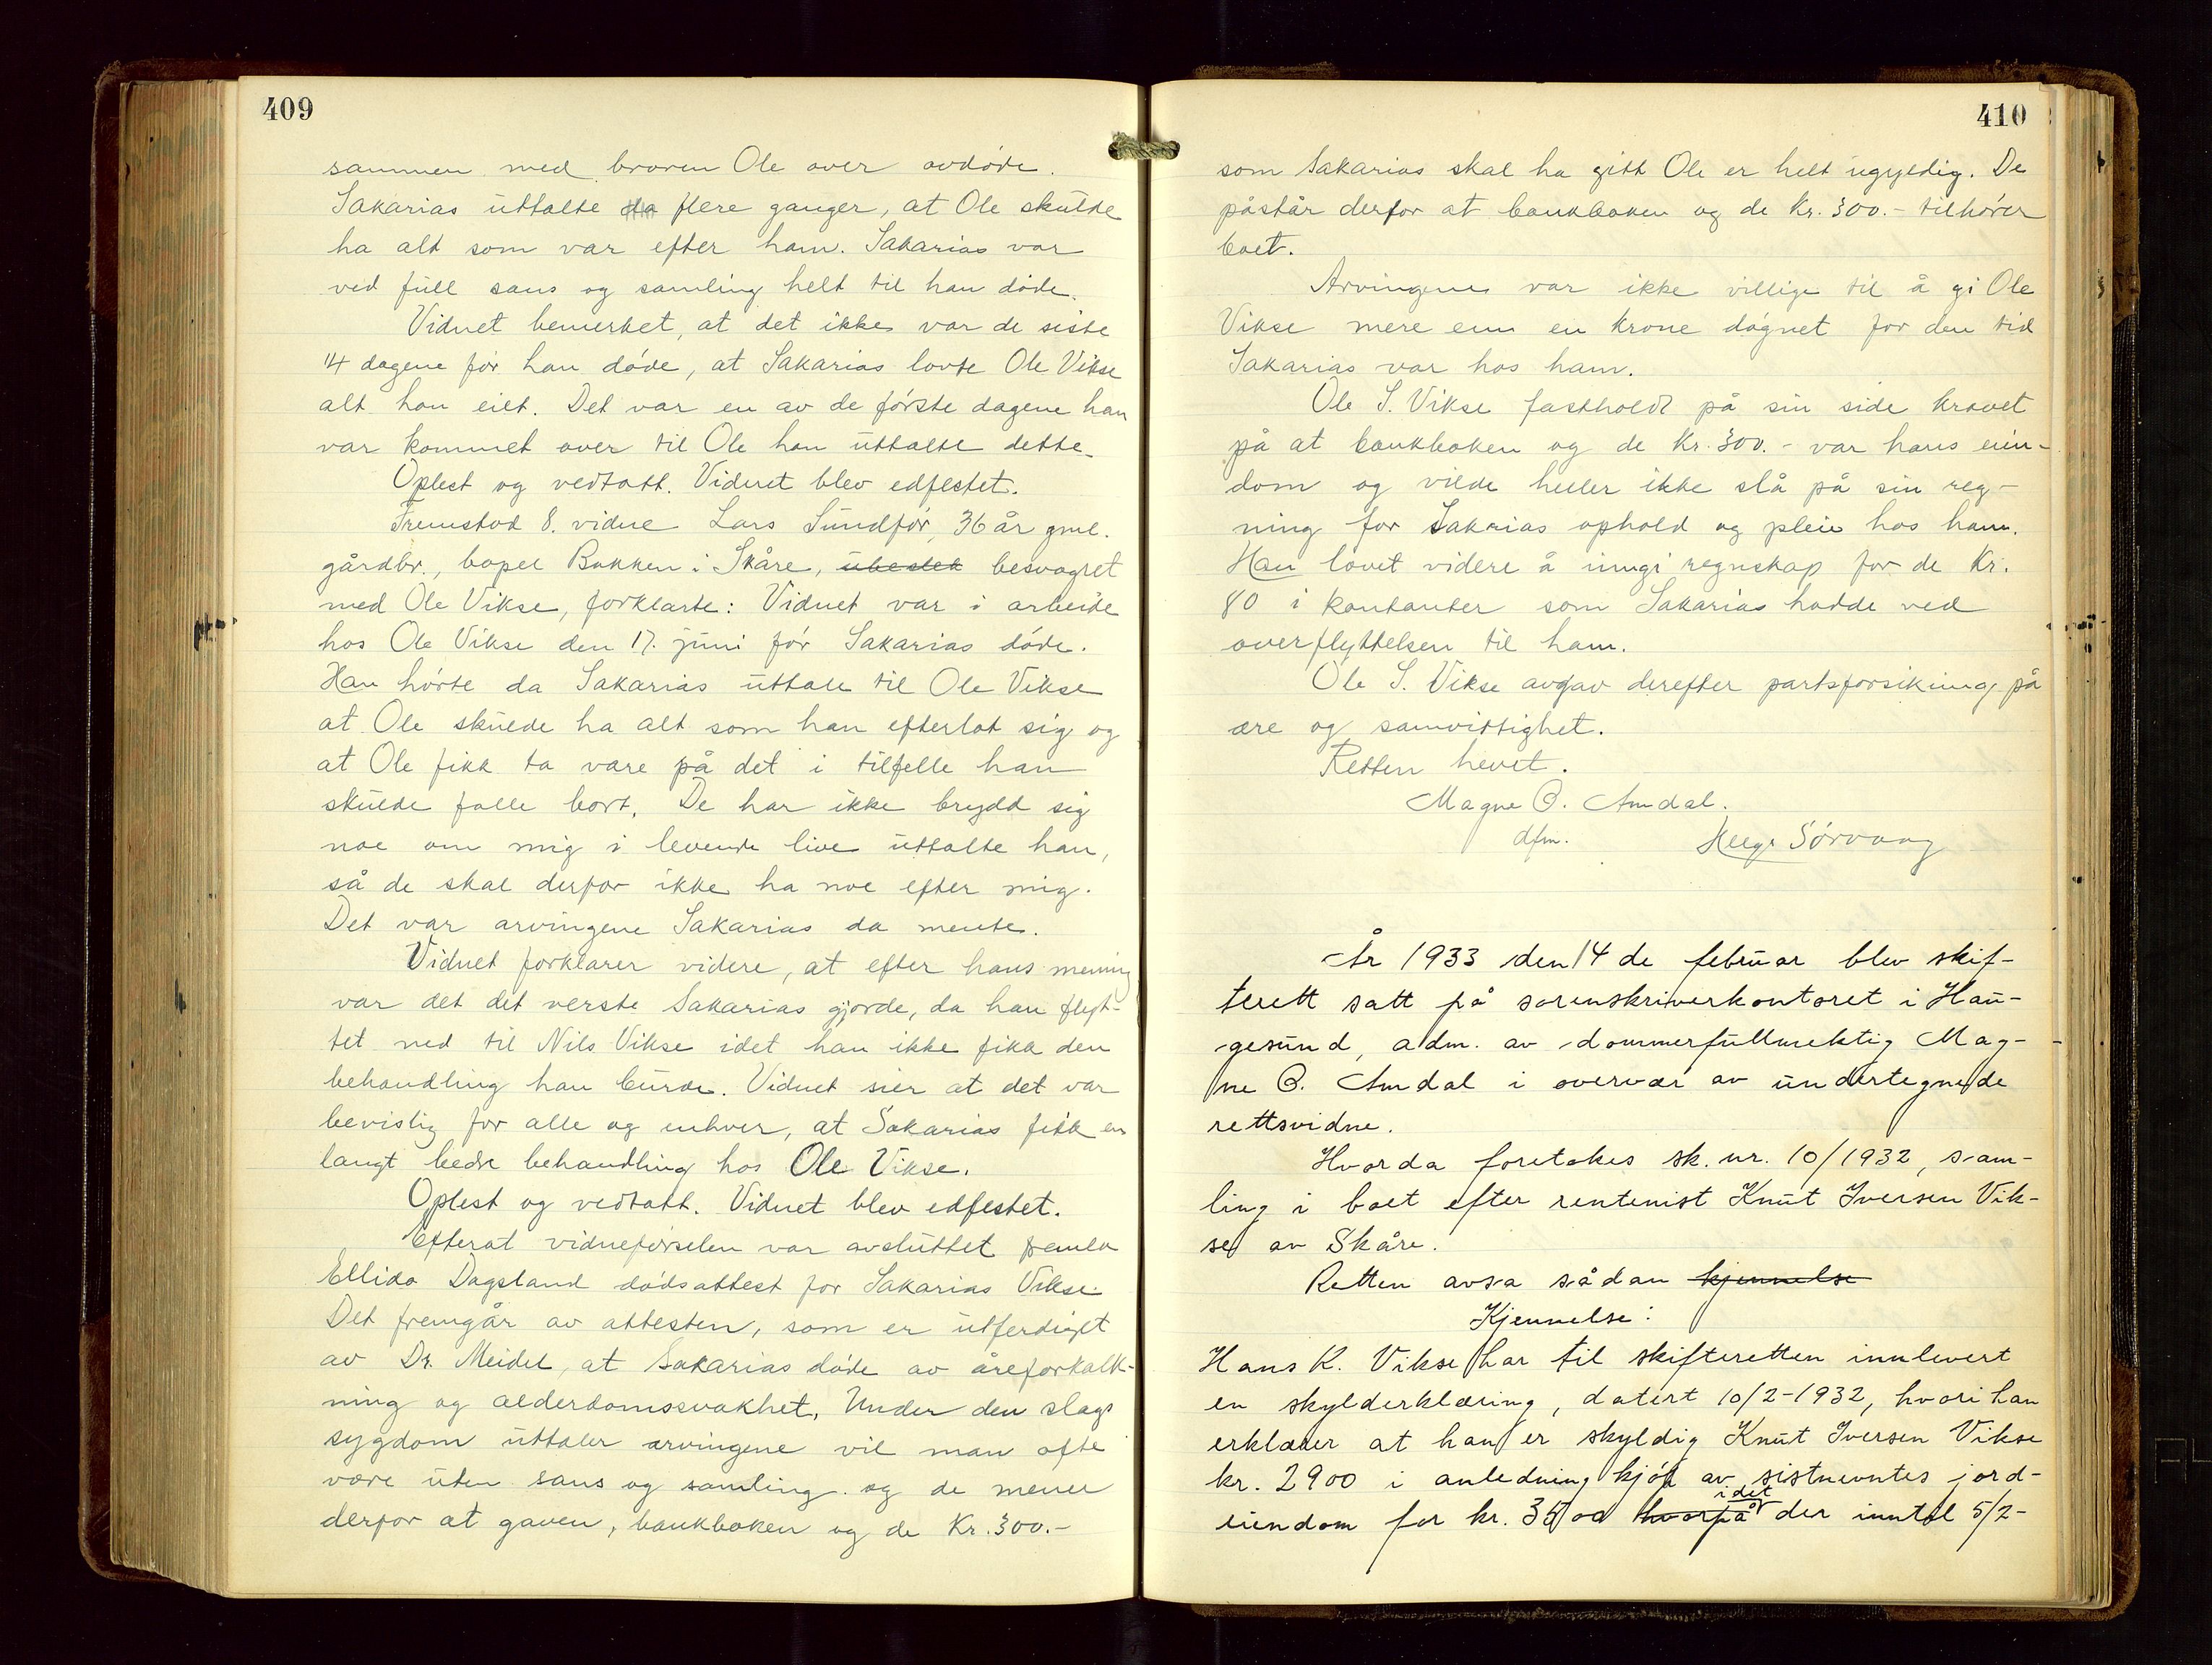 409
sammen med broren Ole over avdøde.
Sakarias uttalte da flere ganger, at Ole skulde
ha alt som var efter ham. Sakarias var
ved full sans og samling helt til han døde.
Vidnet bemerket, at det ikke var de siste
14 dagene før han døde, at Sakarias lovte Ole Vikse
alt han eiet. Det var en av de første dagene han
var kommet over til Ole han uttalte dette.
Oplest og vedtatt. Vidnet blev edfestet.
Fremstod 8. vidne Lars Sundfør, 36 år gml.
gårdbr., bopel Bakken i Skåre, ubeslek besvogret
med Ole Vikse, forklarte: Vidnet var i arbeide
hos Ole Vikse den 17. juni før Sakarias døde.
Han hørte da Sakarias uttale til Ole Vikse
at Ole skulde ha alt som han efterlot sig og
at Ole fikk ta vare på det i tilfelle han
skulde falle bort. De har ikke brydd sig
noe om mig i levende live uttalte han,
så de skal derfor ikke ha noe efter mig.
Det var arvingene Sakarias da mente.
Vidnet forklarer videre, at efter hans mening
var det det verste Sakarias gjorde, da han flyt-
tet ned til Nils Vikse idet han ikke fikk den
behandling han burde. Vidnet sier at det var
bevislig for alle og enhver, at Sakarias fikk en
langt bedre behandling hos Ole Vikse.
Oplest og vedtatt. Vidnet blev edfestet.
Efterat vidneførselen var avsluttet fremla
Ellida Dagsland dødsattest for Sakarias Vikse.
Det fremgår av attesten, som er utferdiget
av Dr. Meidel, at Sakarias døde av åreforkalk-
ning og alderdomssvakhet. Under den slags
sygdom uttaler arvingene vil man ofte
være uten sans og samling og de mener
derfor at gaven, bankboken og de Kr. 300.-
410
som Sakarias skal ha gitt Ole er helt ugyldig. De
påstår derfor at bankboken og de Kr. 300.- tilhører
boet.
Arvingene var ikke villige til å gi Ole
Vikse mere enn en krone døgnet for den tid
Sakarias var hos ham.
Ole S. Vikse fastholdt på sin side kravet
på at bankboken og de Kr. 300.- var hans eien-
dom og vilde heller ikke slå på sin reg-
ning for Sakarias ophold og pleie hos ham.
Han lovet videre å inngi regnskap for de Kr.
80 i kontanter som Sakarias hadde ved
overflyttelsen til ham.
Ole S. Vikse avgav derefter partsforsikring på
ære og samvittighet.
Retten hevet.
Magne O. Amdal.
dfm. Helge Sørvaag
År 1933 den 14 de februar blev skif-
terett satt på sorenskriverkontoret i Hau-
gesund, adm. av dommerfullmektig Mag-
ne O. Amdal i overvær av undertegnede
rettsvidne.
Hvorda foretokes sk. nr. 10/1932, sam-
ling i boet efter rentenist Knut Iversen Vik-
se av Skåre.
Retten avsa sådan kjennelse
Kjennelse:
Hans K. Vikse har til skifteretten innlevert
en skylderklæring, datert 10/2-1932, hvori han
erklærer at han er skyldig Knut Iversen Vikse
kr. 2900 i anledning kjøp av sistnevntes jord-
eiendom for kr. 3500 hvorpå idet der inntil 5/2-